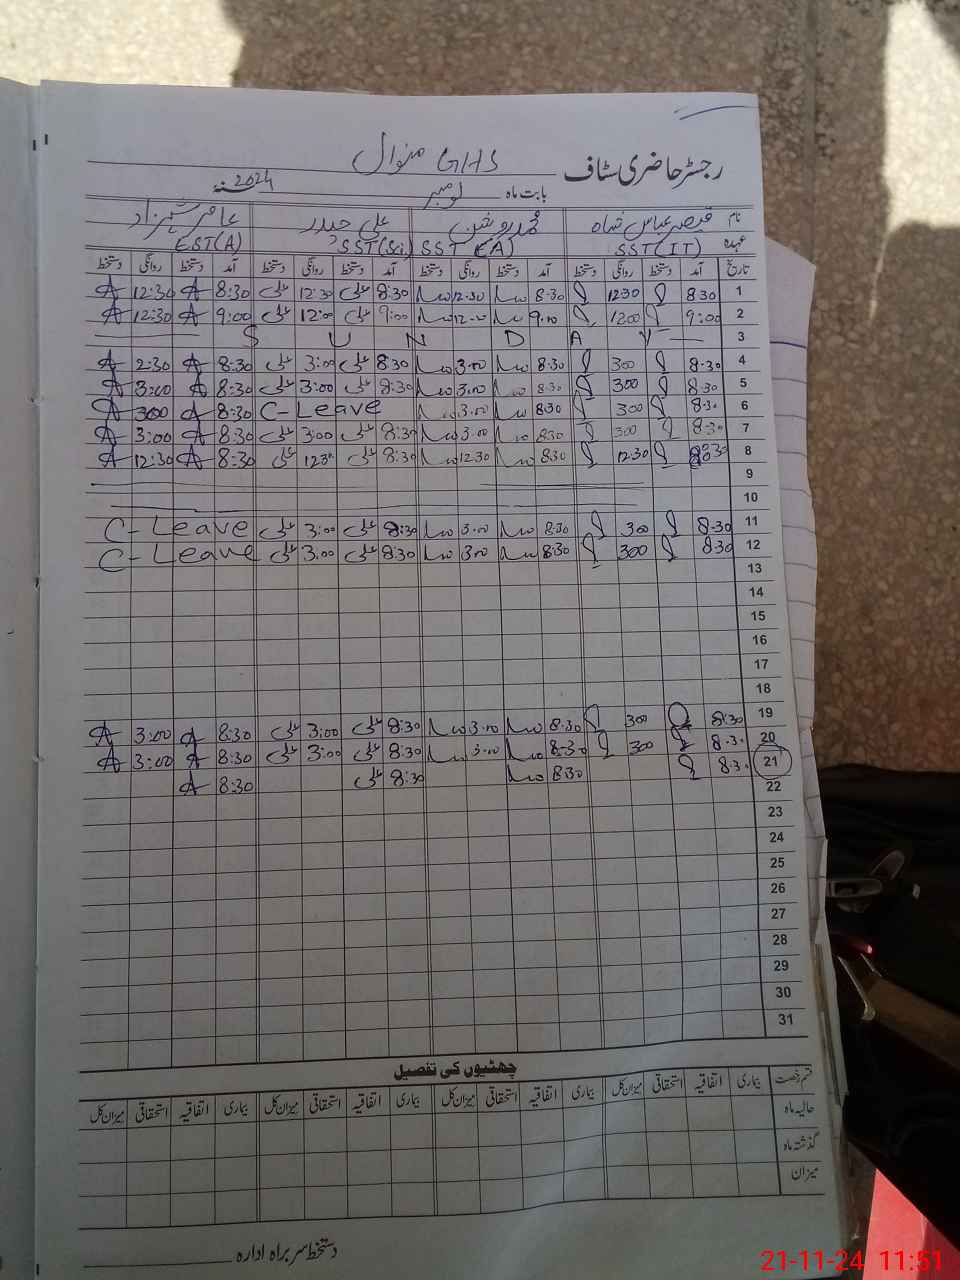 GHS منوال
رجسٹر حاضری سٹاف
بابت ماہ نومبر 2024ء
نام قیصر عباس شاہ علی حیدر عامر شہزاد
عہدہ SST(IT) SST (A) SST(Sci) EST(A)
تاریخ آمد دستخط روانگی دستخط آمد دستخط روانگی دستخط آمد دستخط روانگی دستخط آمد دستخط روانگی دستخط
1 8:30 12:30 8:30 12:30 8:30 علی 12:30 علی 8:30 A 12:30 A
2 9:00 12:00 9:00 12:00 9:00 علی 12:00 علی 9:00 A 12:30 A
3 S U N D A Y
4 8:30 3:00 8:30 3:00 8:30 علی 3:00 علی 8:30 A 2:30 A
5 8:30 3:00 8:30 3:00 8:30 علی 3:00 علی 8:30 A 3:00 A
6 8:30 3:00 8:30 3:00 C-Leave 8:30 A 300 A
7 8:30 300 8:30 3:00 8:30 علی 3:00 علی 8:30 A 3:00 A
8 8:30 12:30 8:30 12:30 8:30 علی 12:30 علی 8:30 A 12:30 A
9
10
11 8:30 300 8:30 3:00 8:30 علی 3:00 علی C-Leave
12 8:30 300 8:30 3:00 8:30 علی 3:00 علی C-Leave
13
14
15
16
17
18
19 8:30 300 8:30 3:00 8:30 علی 3:00 علی 8:30 A 3:00 A
20 8:30 300 8:30 3:00 8:30 علی 3:00 علی 8:30 A 3:00 A
21 8:30 8:30 8:30 علی 8:30 A
22
23
24
25
26
27
28
29
30
31
چھٹیوں کی تفصیل
قسم رخصت بیماری اتفاقیہ استحقاقی میزان کل بیماری اتفاقیہ استحقاقی میزان کل بیماری اتفاقیہ استحقاقی میزان کل بیماری اتفاقیہ استحقاقی میزان کل
حالیہ ماہ
گذشتہ ماہ
میزان
دستخط سربراہ ادارہ
21-11-24 11:51